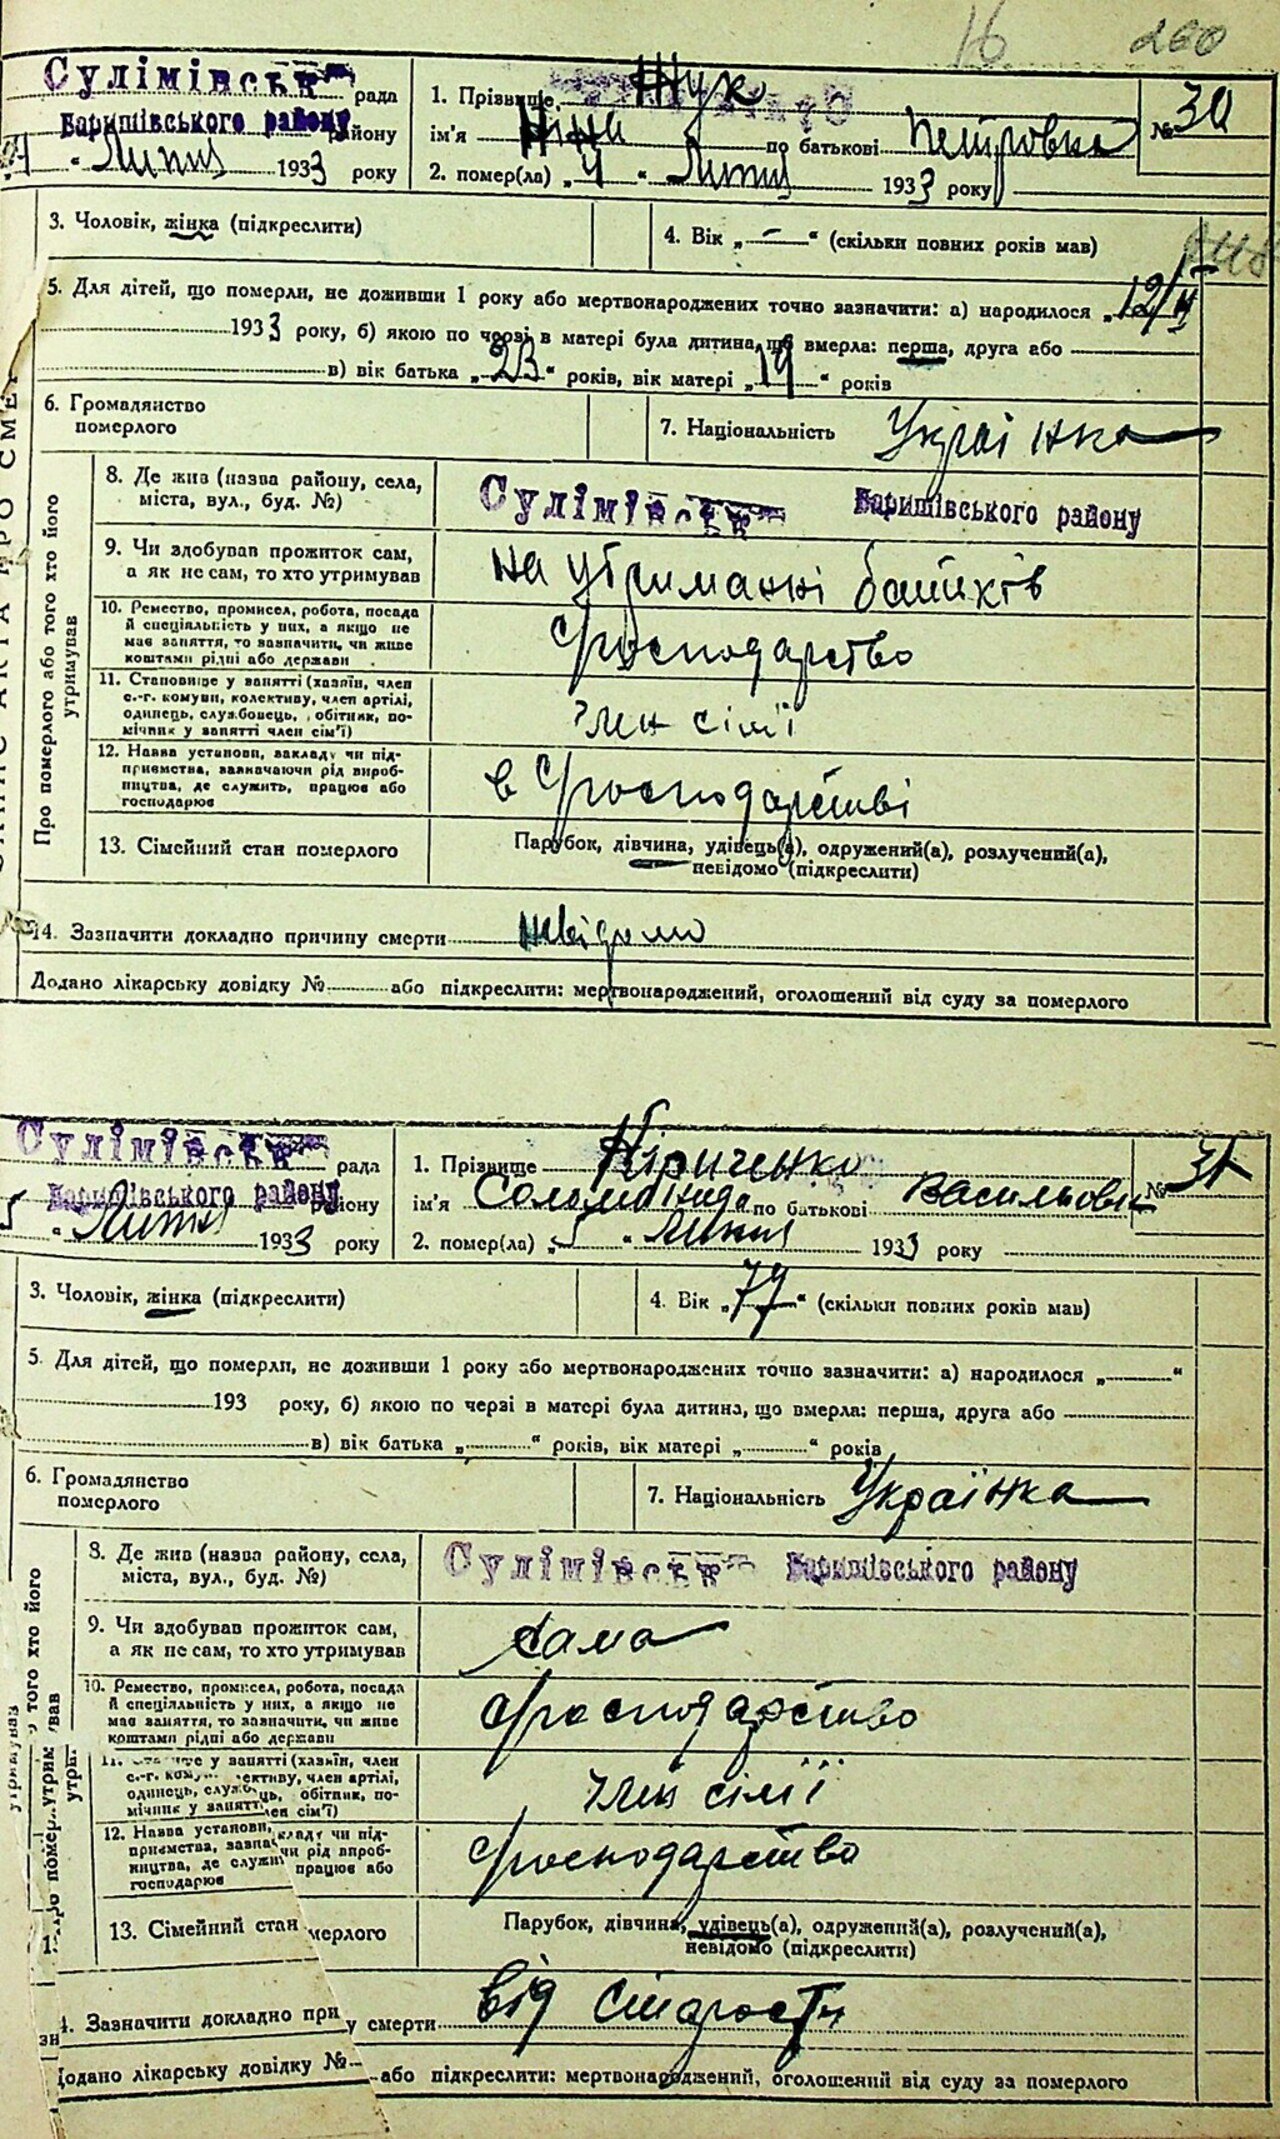 16 260
Сулімівськ рада
Баришівського району району
„4“ Липня 1933 року
1. Прізвище Жук
ім'я Ніна по батькові Петровна
2. помер(ла) „4“ Липня 1933 року
№ 30
3. Чоловік, жінка (підкреслити)
4. Вік „-“ (скільки повних років мав)
5. Для дітей, що померли, не доживши 1 року або мертвонароджених точно зазначити: а) народилося „12/VI
1933 року, б) якою по черзі в матері була дитина, що вмерла: перша, друга або
в) вік батька „23“ років, вік матері „19“ років
6. Громадянство
померлого
7. Національність Українка
Про померлого або того хто його
утримував
8. Де жив (назва району, села,
міста, вул., буд. №)
Сулімівськ Баришівського району
9. Чи здобував прожиток сам,
а як не сам, то хто утримував
на утриманні батьків
10. Ремество, промисел, робота, посада
й спеціяльність у них, а якщо не
має заняття, то зазначити, чи живе
коштами рідні або держави
Господарство
11. Становище у занятті (хазяїн, член
с.-г. комуни, колективу, член артілі,
одинець, службовець, обітник, по-
мічник у занятті член сім'ї)
член сімї
12. Назва установи, закладу чи під-
приємства, зазначаючи рід вироб-
ництва, де служить, працює або
господарює
в Господарстві
13. Сімейний стан померлого
Парубок, дівчина, удівець(а), одружений(а), розлучений(а),
невідомо (підкреслити)
14. Зазначити докладно причину смерти невідомо
Додано лікарську довідку № або підкреслити: мертвонароджений, оголошений від суду за померлого
Сулімівськ рада
Баришівського району району
5 “ Липня 1933 року
1. Прізвище Кіриченко
ім'я Соломонида по батькові Васильовн
2. помер(ла) „5“ Липня 1933 року
№ 31
3. Чоловік, жінка (підкреслити)
4. Вік „79“ (скільки повних років мав)
5. Для дітей, що померли, не доживши 1 року або мертвонароджених точно зазначити: а) народилося „ “
193 року, б) якою по черзі в матері була дитина, що вмерла: перша, друга або
в) вік батька „ “ років, вік матері „ “ років
6. Громадянство
померлого
7. Національність Українка
того хто його
8. Де жив (назва району, села,
міста, вул., буд. №)
Сулімівськ Баришівського району
9. Чи здобував прожиток сам,
а як не сам, то хто утримував
сама
10. Ремество, промисел, робота, посада
й спеціяльність у них, а якщо не
має заняття, то зазначити, чи живе
коштами рідні або держави
Господарство
у занятті (хазяїн, член
с.-г. ективу, член артілі,
одинець, обітник, по-
мічник у занятті сім'ї)
член сімії
12. Назва установи, чи під-
приємства, чи рід вироб-
ництва, де працює або
господарює
Господарство
13. Сімейний стан мерлого
Парубок, дівчина, удівець(а), одружений(а), розлучений(а),
невідомо (підкреслити)
4. Зазначити докладно при у смерти від старости
одано лікарську довідку № або підкреслити: мертвонароджений, оголошений від суду за померлого